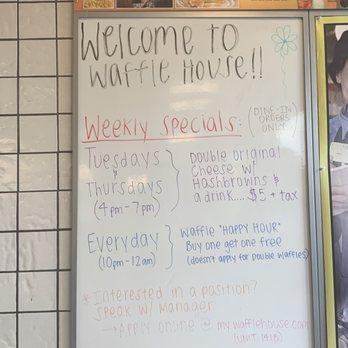 WELCOME TO
WAFFLE HOUSE!!
WEEKLY SPECIALS:
(DINE-IN
ORDERS
ONLY)
TUESDAYS
&
THURSDAYS
(4pm-7pm)
DOUBLE ORIGINAL
CHEESE W/
HASHBROWNS &
A DRINK.... $5 + TAX
EVERYDAY
(10pm-12am)
WAFFLE "HAPPY HOUR"
Buy one get one free
(doesn't apply for Double Waffles)
*Interested in a position?
Speak w/ Manager
→ Apply online @ mywafflehouse.com
(UNIT 1418)